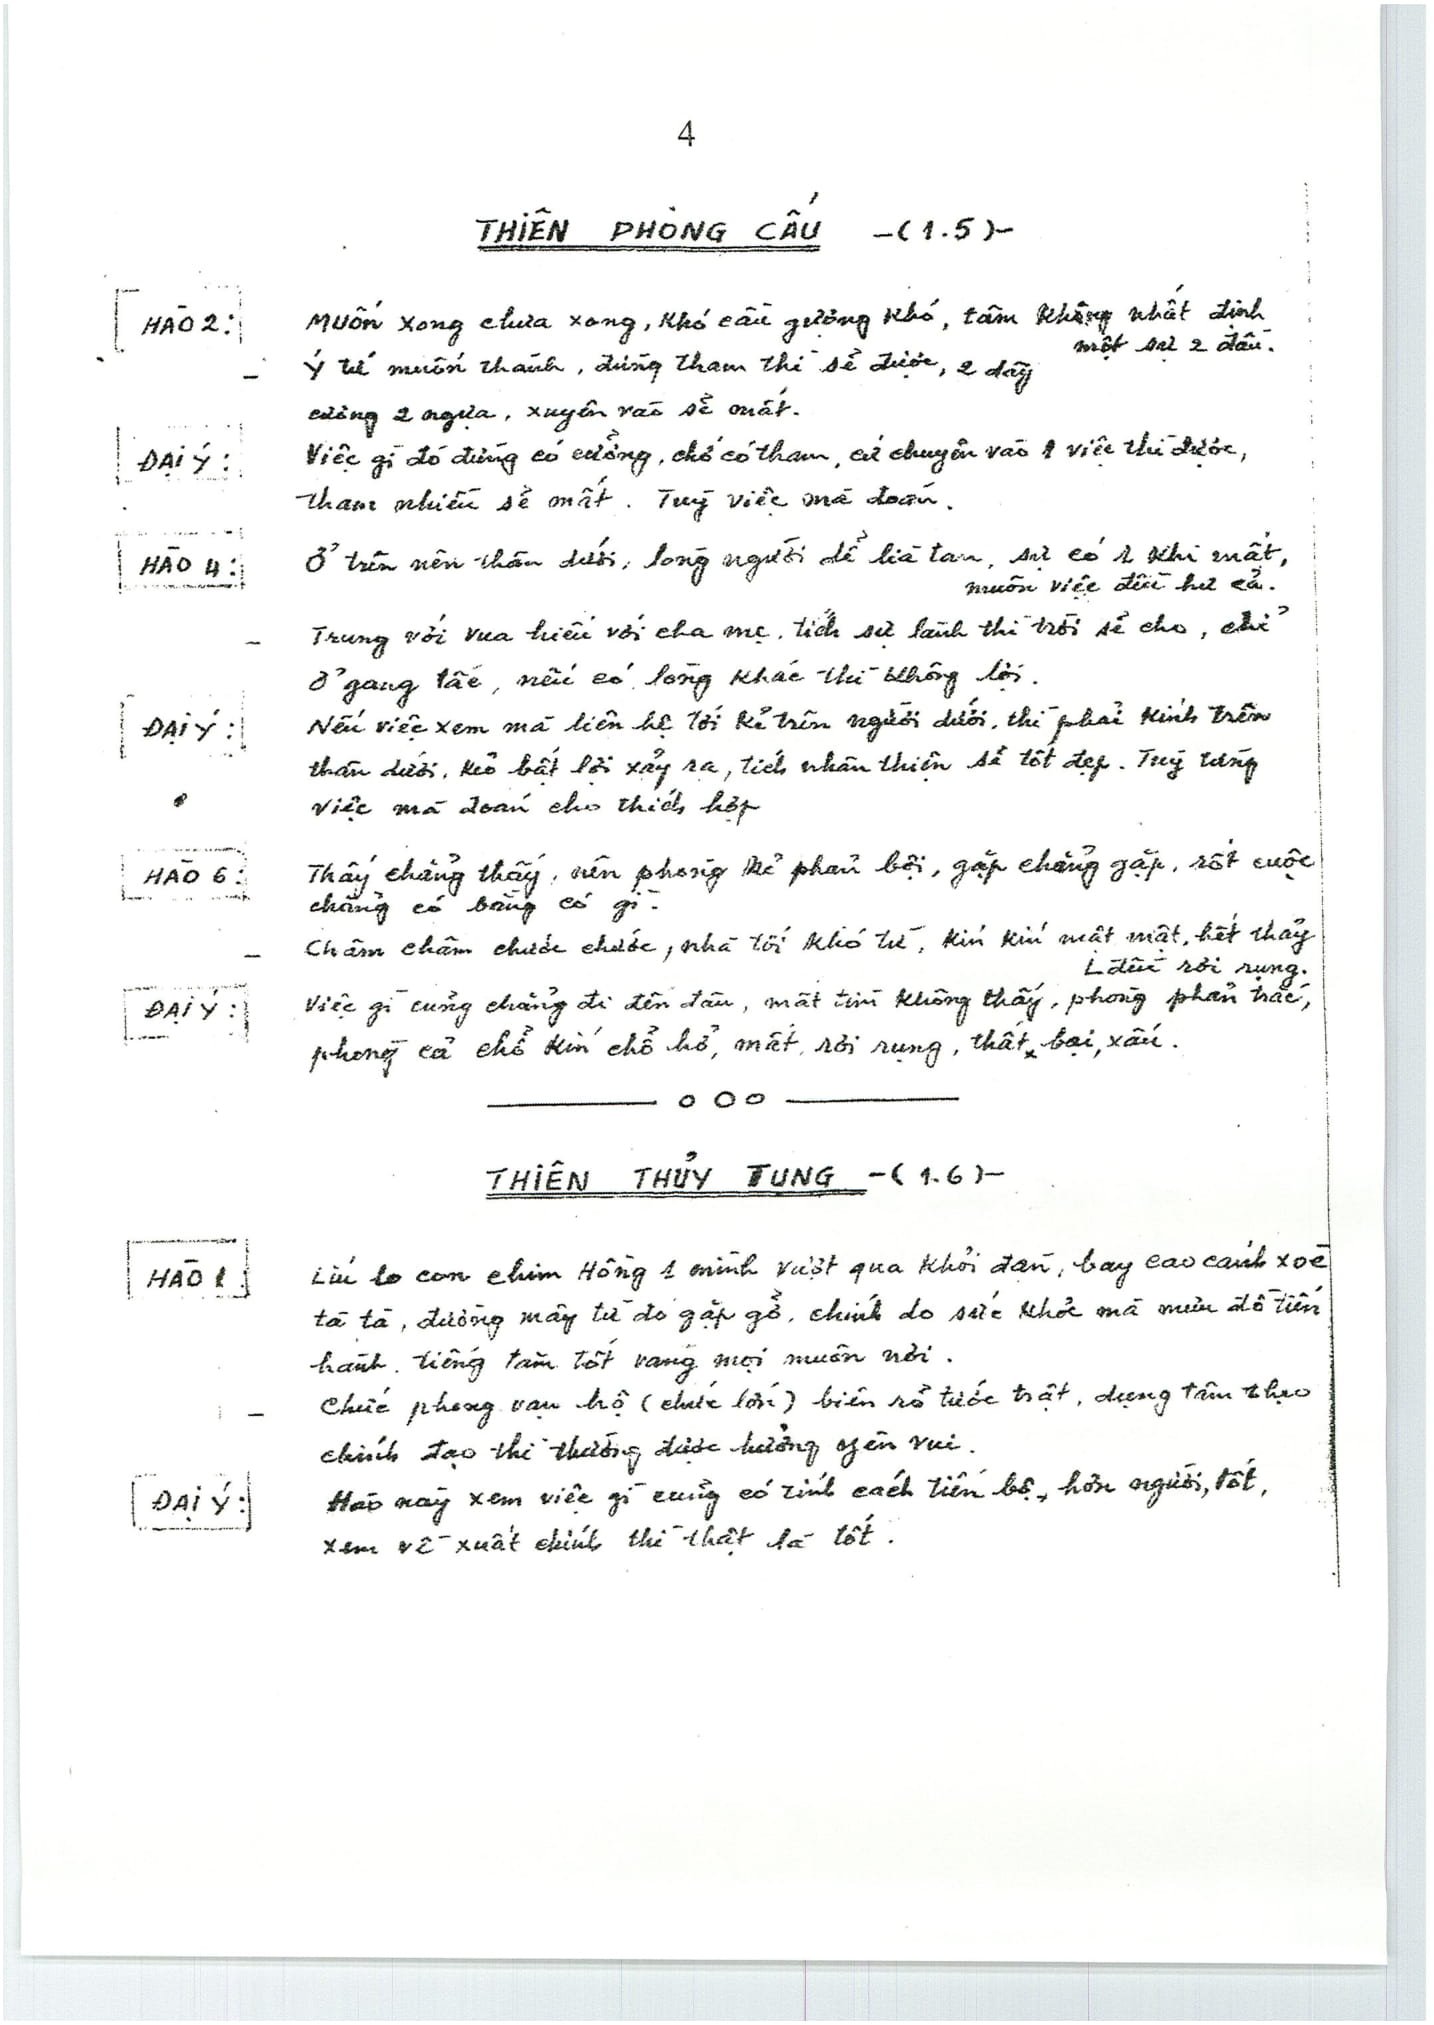 4
THIÊN PHONG CẤU -(1.5)-
HÀO 2: Muốn xong chưa xong, khó cầu gượng khó, tâm không nhất định
một sự 2 đầu.
- Ý tứ muốn thành, đừng tham thì sẽ được, 2 dây
cương 2 ngựa, xuyên vào sẽ mất.
ĐẠI Ý: Việc gì đó đừng có cưỡng, chớ có tham, cứ chuyên vào 1 việc thì được,
tham nhiều sẽ mất. Tùy việc mà đoán.
HÀO 4: Ở trên nên thân dưới, lòng người dễ lìa tan, sự có 1 khi mất,
muôn việc đều hư cả.
- Trung với vua hiếu với cha mẹ, tích sự lành thì trời sẽ cho, chỉ
ở gang tấc, nếu có lòng khác thì không lợi.
ĐẠI Ý: Nếu việc xem mà liên hệ tới kẻ trên người dưới, thì phải kính trên
thân dưới, kẻo bất lợi xẩy ra, tích nhân thiện sẽ tốt đẹp. Tùy từng
việc mà đoán cho thích hợp
HÀO 6: Thấy chẳng thấy, nên phòng kẻ phản bội, gặp chẳng gặp, rốt cuộc
chẳng có bằng có gì.
- Châm châm chước chước, nhà tối khó từ, kín kín mật mật, hết thảy
đều rơi rụng.
ĐẠI Ý: Việc gì cũng chẳng đi đến đâu, mất tìm không thấy, phòng phản trắc,
phòng cả chỗ kín chỗ hở, mất, rơi rụng, thất bại, xấu.
o O o
THIÊN THỦY TỤNG -(1.6)-
HÀO 1: Líu lo con chim Hồng 1 mình vượt qua khỏi đàn, bay cao cánh xoè
tà tà, đường mây từ đó gặp gỡ, chính do sức khỏe mà mưu đồ tiến
hành, tiếng tăm tốt vang mọi muôn nơi.
- Chức phong vạn hộ (chức lớn) biến rõ tước trật, dụng tâm theo
chính đạo thì thường được hưởng yên vui.
ĐẠI Ý: Hào này xem việc gì cũng có tính cách tiến bộ, hơn người, tốt,
xem về xuất chính thì thật là tốt.